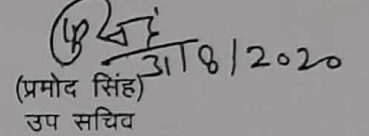 31/8/2020
(प्रमोद सिंह)
उप सचिव